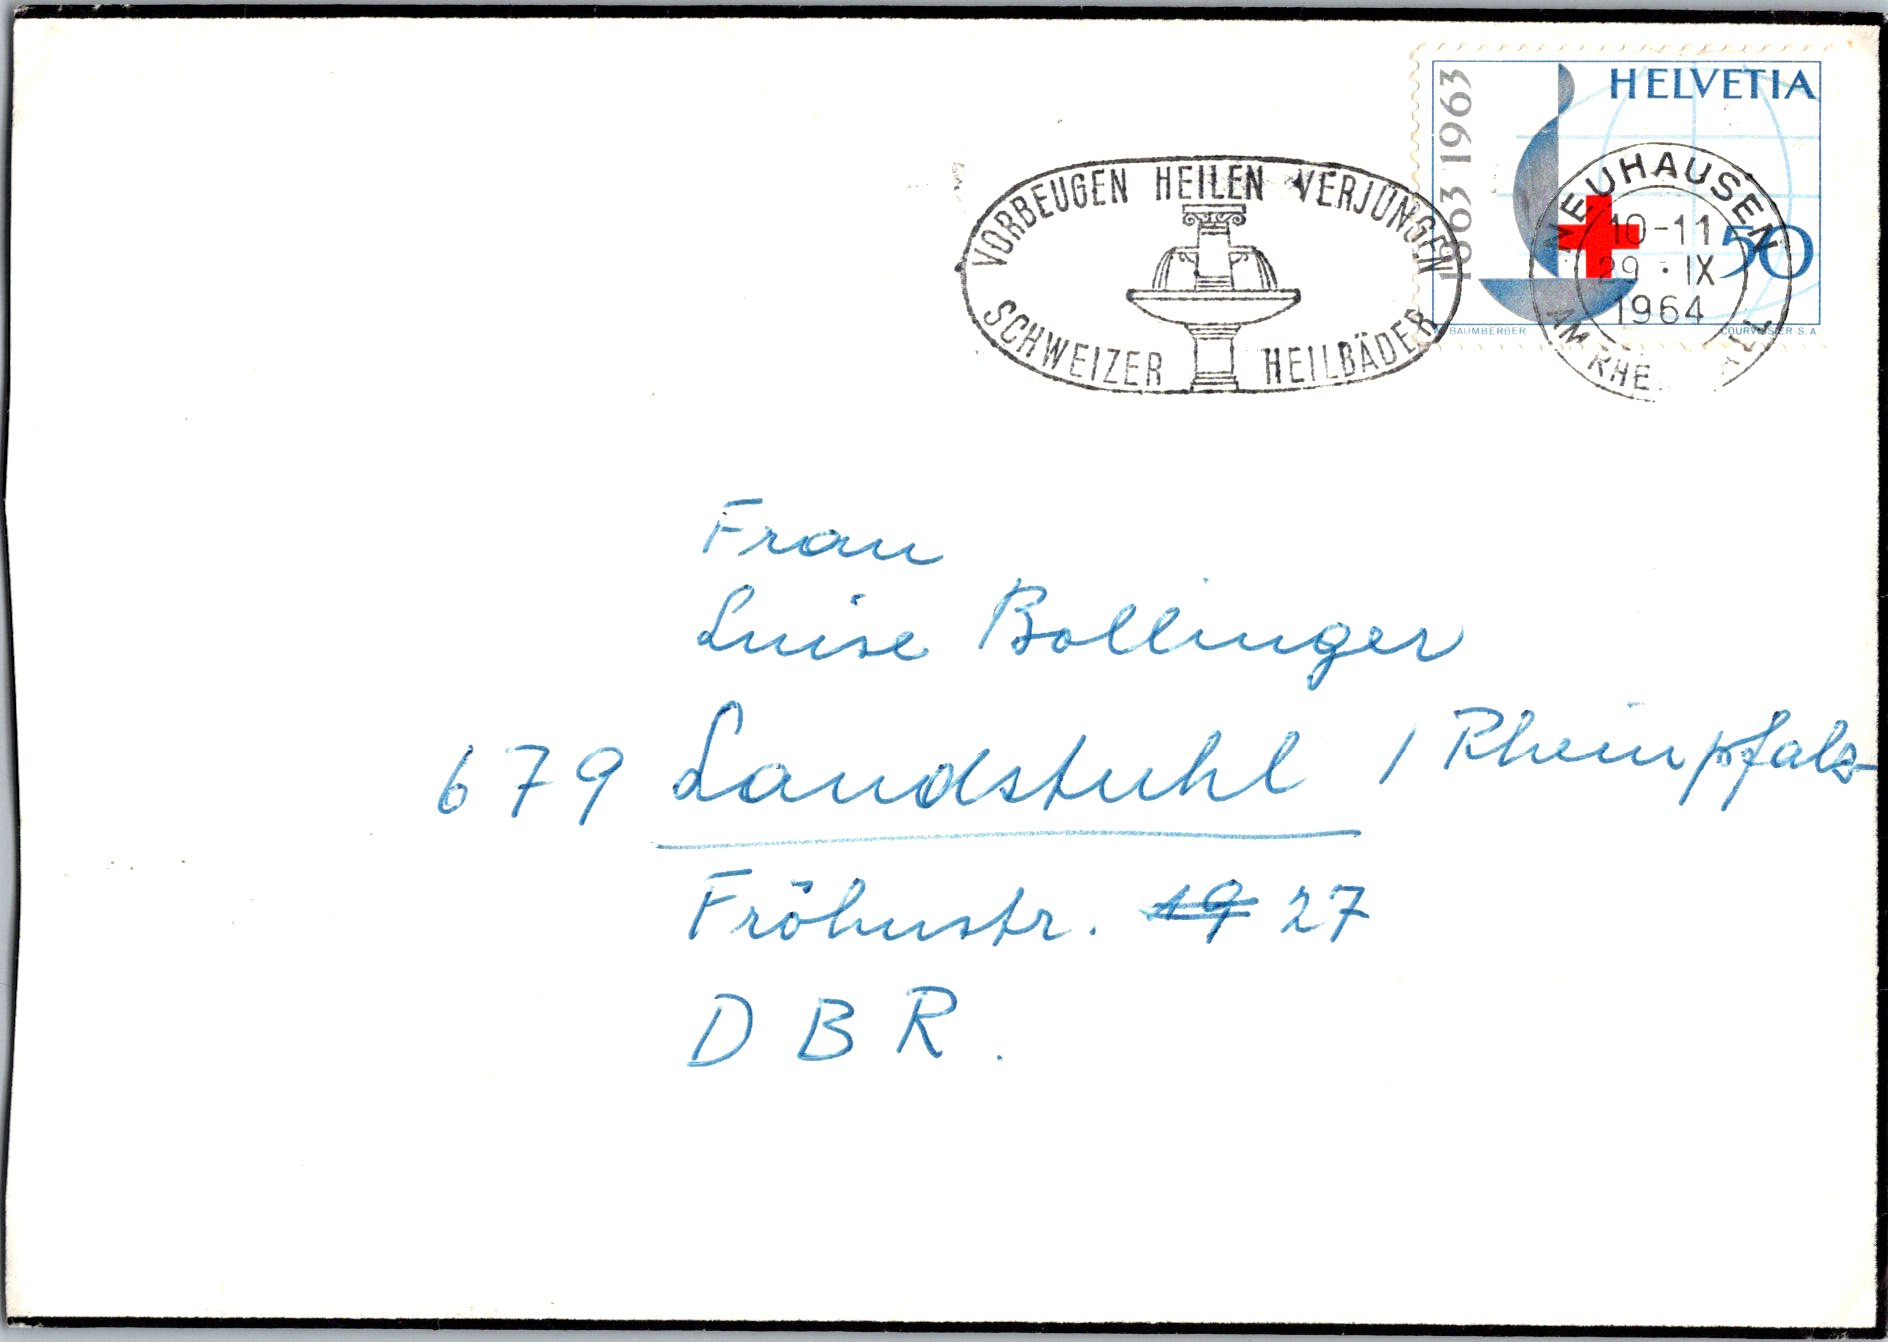 HELVETIA
1863 1963
50
BAUMBERGER
COURVOISIER S.A.
VORBEUGEN HEILEN VERJÜNGEN
SCHWEIZER HEILBÄDER
NEUHAUSEN
10-11
29·IX
1964
AM RHE
ALL
Frau
Luise Bollinger
679 Landstuhl / Rheinpfalz
Fröhnstr. 19 27
D B R.